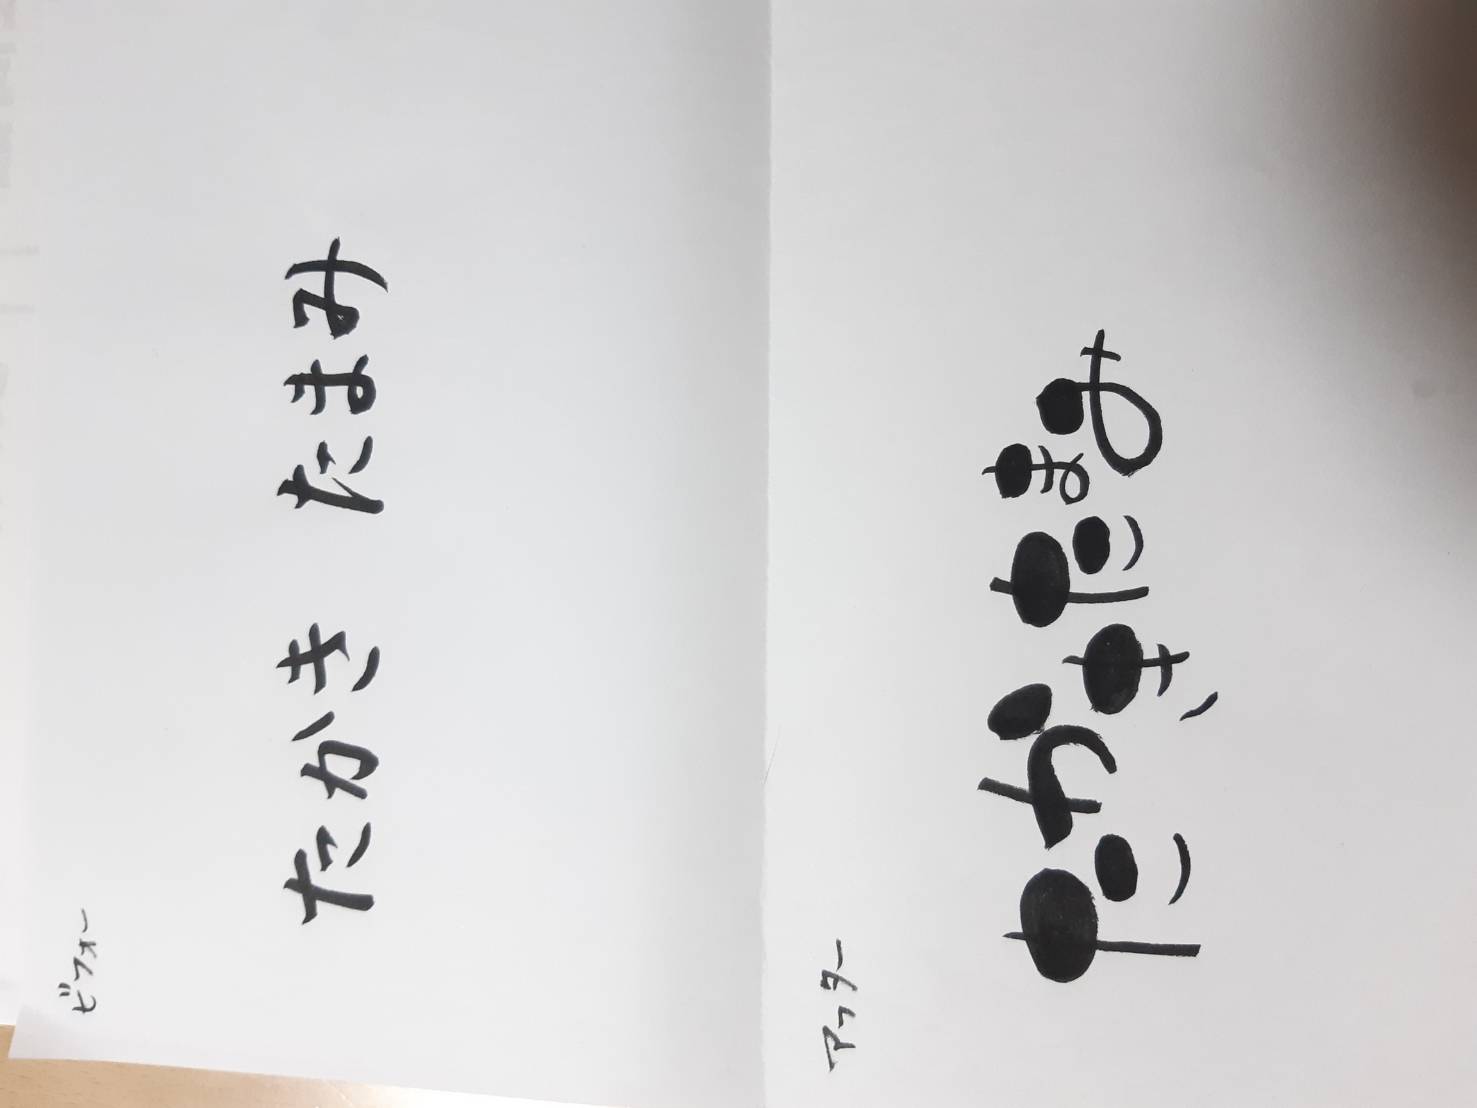 ビフォー
たかき たまみ
アフター
たかきたまみ